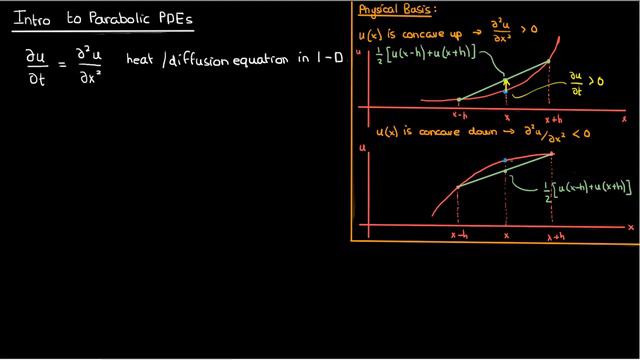 Intro to Parabolic PDEs
∂u/∂t = ∂²u/∂x² heat/diffusion equation in 1-D
Physical Basis:
u(x) is concave up → ∂²u/∂x² > 0
u
½[u(x-h)+u(x+h)]
∂u/∂t > 0
x-h x x+h x
u(x) is concave down → ∂²u/∂x² < 0
u
½[u(x-h)+u(x+h)]
x-h x x+h x